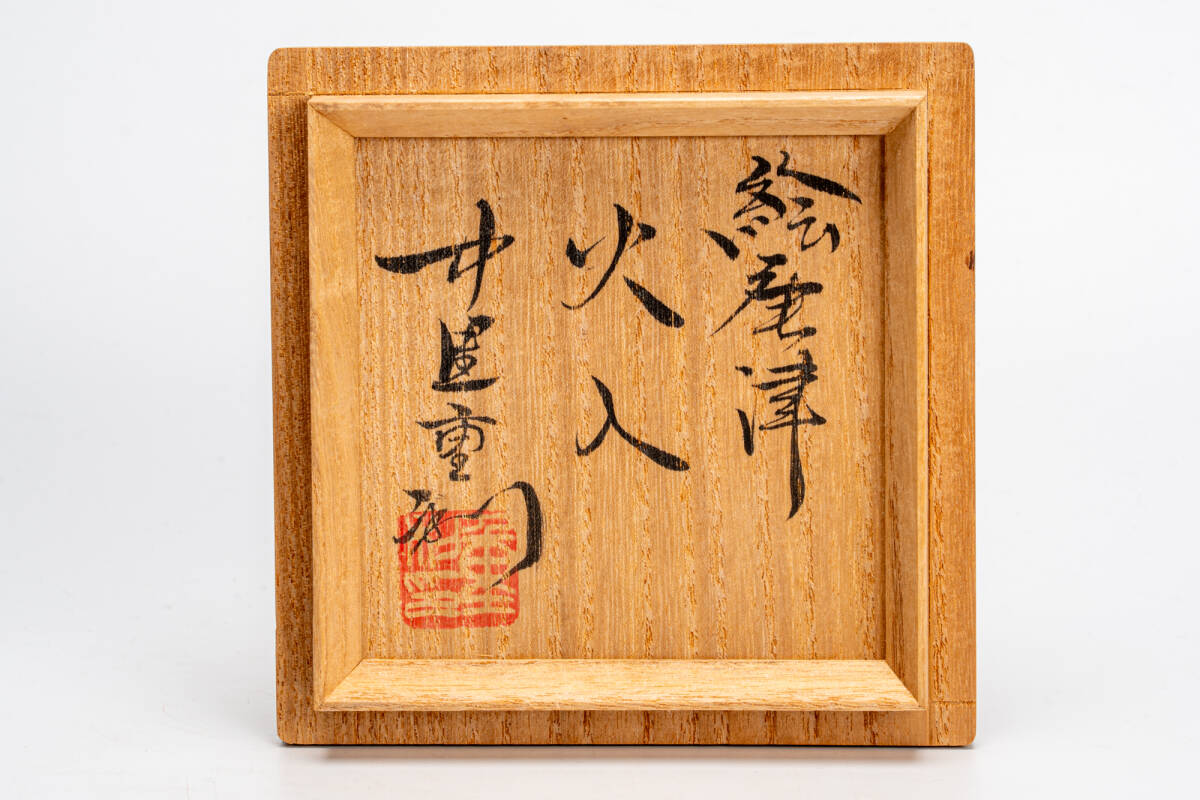 絵唐津
火入
中里重利